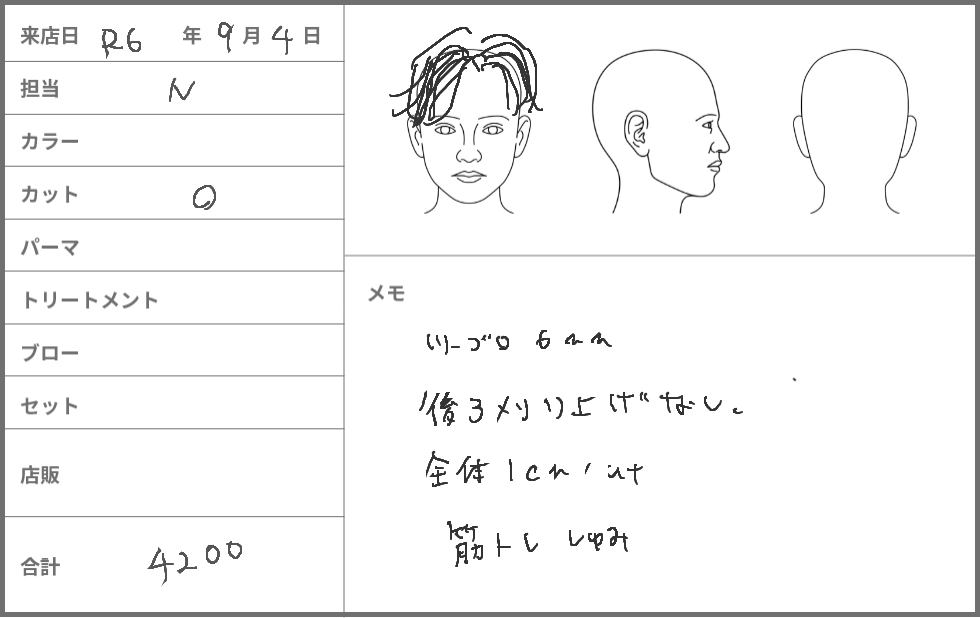 来店日 R6 年 9 月 4 日
担当 N
カラー
カット ○
パーマ
トリートメント
ブロー
セット
店販
合計 4200
メモ
ツーブロ 6mm
後ろ刈り上げなし。
全体 1cm cut
筋トレ しゅみ